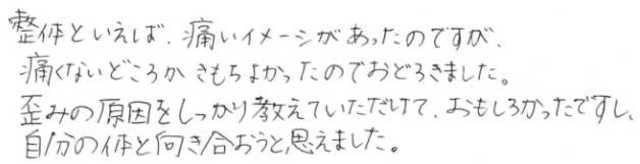 整体といえば、痛いイメージがあったのですが、
痛くないどころか きもちよかったのでおどろきました。
歪みの原因をしっかり教えていただけて、おもしろかったですし、
自分の体と向き合おうと思えました。